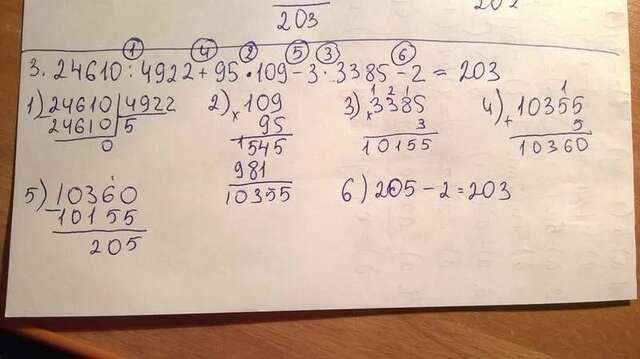 203
① ④ ② ⑤ ③ ⑥
3. 24610 : 4922 + 95 · 109 - 3 · 3385 - 2 = 203
1) 24610 | 4922
24610 | 5
0
2) × 109
95
1545
981
10355
1 2 1
3) × 3385
3
10155
1
4) + 10355
5
10360
5) 10360
- 10155
205
6) 205 - 2 = 203